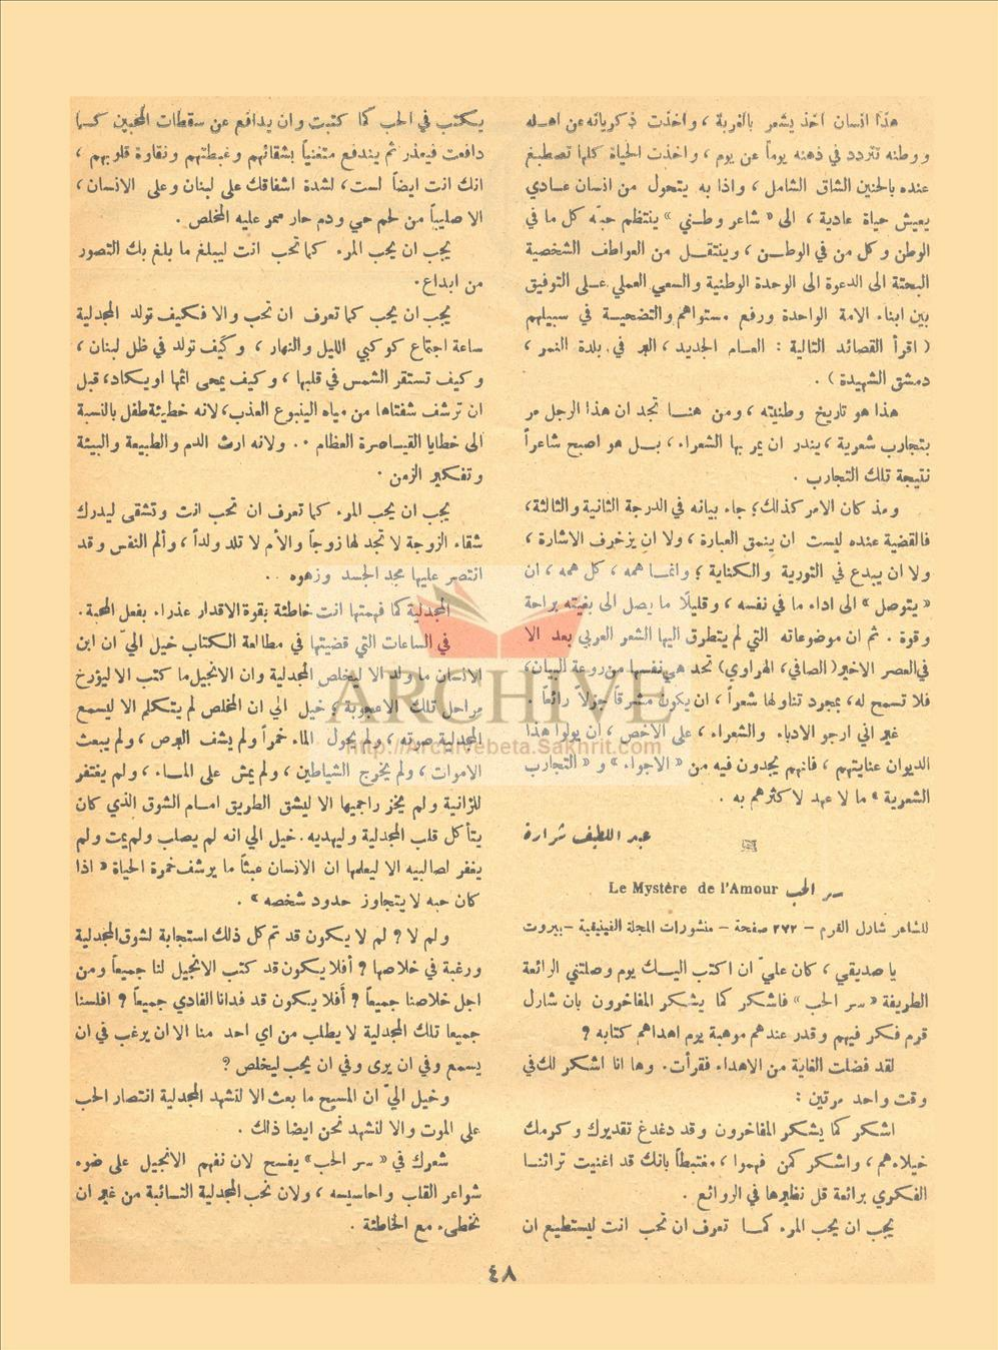 هذا انسان اخذ يشعر بالغربة ، واخذت ذكرياته عن اهله
ووطنه تتردد في ذهنه يوماً عن يوم ، واخذت الحياة كلها تصطبغ
عنده بالحنين الشاق الشامل ، واذا به يتحول من انسان عادي
يعيش حياة عادية ، الى « شاعر وطني » ينتظم حبّه كل ما في
الوطن وكل من في الوطن ، وينتقل من العواطف الشخصية
البحتة الى الدعوة الى الوحدة الوطنية والسعي العملي على التوفيق
بين ابناء الامة الواحدة ورفع مستواهم والتضحية في سبيلهم
( اقرأ القصائد التالية : العام الجديد ، العيد في بلدة النمر ،
دمشق الشهيدة ) .
هذا هو تاريخ وطنيته ، ومن هنا تجد ان هذا الرجل مر
بتجارب شعرية ، يندر ان يمر بها الشعراء ، بل هو اصبح شاعراً
نتيجة تلك التجارب .
ومذ كان الامر كذلك ؛ جاء بيانه في الدرجة الثانية والثالثة ،
فالقضية عنده ليست ان ينمق العبارة ، ولا ان يزخرف الاشارة ،
ولا ان يبدع في التورية والكناية ؛ وانما همه ، كل همه ، ان
« يتوصل » الى اداء ما في نفسه ، وقليلًا ما يصل الى بغيته براحة
وقوة . ثم ان موضوعاته التي لم يتطرق اليها الشعر العربي بعد الا
في العصر الاخير ( الصافي ، الهراوي ) تحد هي نفسها من روعة البيان ،
فلا تسمح له ، بمجرد تناولها شعراً ، ان يكون مشرقاً جزلاً رائعاً .
غير اني ارجو الادباء والشعراء ، على الاخص ، ان يولوا هذا
الديوان عنايتهم ، فانهم يجدون فيه من « الاجواء » و « التجارب
الشعرية » ما لا عهد لاكثرهم به .
عبد اللطيف شرارة
سر الحب Le Mystère de l'Amour
للشاعر شارل القرم – ٢٧٢ صفحة – منشورات المجلة الفينيقية – بيروت
يا صديقي ، كان عليّ ان اكتب اليك يوم وصلتني الرائعة
الطريفة « سر الحب » فاشكر كما يشكر المفاخرون بان شارل
قرم فكر فيهم وقدر عندهم موهبة يوم اهداهم كتابه ؟
لقد فضلت الغاية من الاهداء فقرأت . وها انا اشكر لك في
وقت واحد مرتين :
اشكر كما يشكر المفاخرون وقد دغدغ تقديرك وكرمك
خيلاءهم ، واشكر كمن فهموا ، مغتبطاً بانك قد اغنيت تراثنا
الفكري برائعة قل نظيرها في الروائع .
يجب ان يحب المرء كما تعرف ان تحب انت ليستطيع ان
يكتب في الحب كما كتبت وان يدافع عن سقطات المحبين كما
دافعت فيعذر ثم يندفع متغنياً بشقائهم وغبطتهم ونقاوة قلوبهم ،
انك انت ايضاً لست ، لشدة اشفاقك على لبنان وعلى الانسان ،
الا صليباً من لحم حي ودم حار سمر عليه المخلص .
يجب ان يحب المرء كما تحب انت ليبلغ ما بلغ بك التصور
من ابداع .
يجب ان يحب كما تعرف ان تحب والا فكيف تولد المجدلية
ساعة اجتماع كوكبي الليل والنهار ، وكيف تولد في ظل لبنان ،
وكيف تستقر الشمس في قلبها ، وكيف يمحى اثمها او يكاد ، قبل
ان ترشف شفتاها من مياه الينبوع العذب ، لانه خطيئة طفل بالنسبة
الى خطايا القياصرة العظام .. ولانه ارث الدم والطبيعة والبيئة
وتفكير الزمن .
يجب ان يحب المرء كما تعرف ان تحب انت وتشقى ليدرك
شقاء الزوجة لا تجد لها زوجاً والأم لا تلد ولداً ، وألم النفس وقد
انتصر عليها مجد الجسد وزهوه .
المجدلية كما فهمتها انت خاطئة بقوة الاقدار عذراء بفعل المحبة .
في الساعات التي قضيتها في مطالعة الكتاب خيل اليّ ان ابن
الانسان ما ولد الا ليخلص المجدلية وان الانجيل ما كتب الا ليؤرخ
مراحل تلك الاعجوبة ، خيل الي ان المخلص لم يتكلم الا ليسمع
المجدلية صوته ، ولم يحول الماء خمراً ولم يشف البرص ، ولم يبعث
الاموات ، ولم يخرج الشياطين ، ولم يمش على الماء ، ولم يغتفر
للزانية ولم يخز راجميها الا ليشق الطريق امام الشوق الذي كان
يتأكل قلب المجدلية وليهديه . خيل الي انه لم يصاب ولم يمت ولم
يغفر لصالبيه الا ليعلمها ان الانسان عبثاً ما يرشف خمرة الحياة « اذا
كان حبه لا يتجاوز حدود شخصه » .
ولم لا ? لم لا يكون قد تم كل ذلك استجابة لشوق المجدلية
ورغبة في خلاصها ? أفلا يكون قد كتب الانجيل لنا جميعاً ومن
اجل خلاصنا جميعاً ? أفلا يكون قد فدانا الفادي جميعاً ? افلسنا
جميعا تلك المجدلية لا يطلب من اي احد منا الا ان يرغب في ان
يسمع وفي ان يرى وفي ان يحب ليخلص ?
وخيل اليّ ان المسيح ما بعث الا لتشهد المجدلية انتصار الحب
على الموت والا لنشهد نحن ايضا ذلك .
شعرك في « سر الحب » يفسح لان نفهم الانجيل على ضوء
شواعر القلب واحاسيسه ، ولان نحب المجدلية التائبة من غير ان
نخطىء مع الخاطئة .
٤٨
ARCHIVE
http://Archivebeta.Sakhrit.com